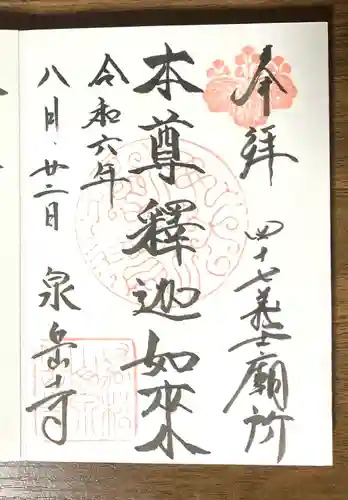 奉拝
四十七義士廟所
本尊釋迦如來
令和六年
八月廿二日
泉岳寺